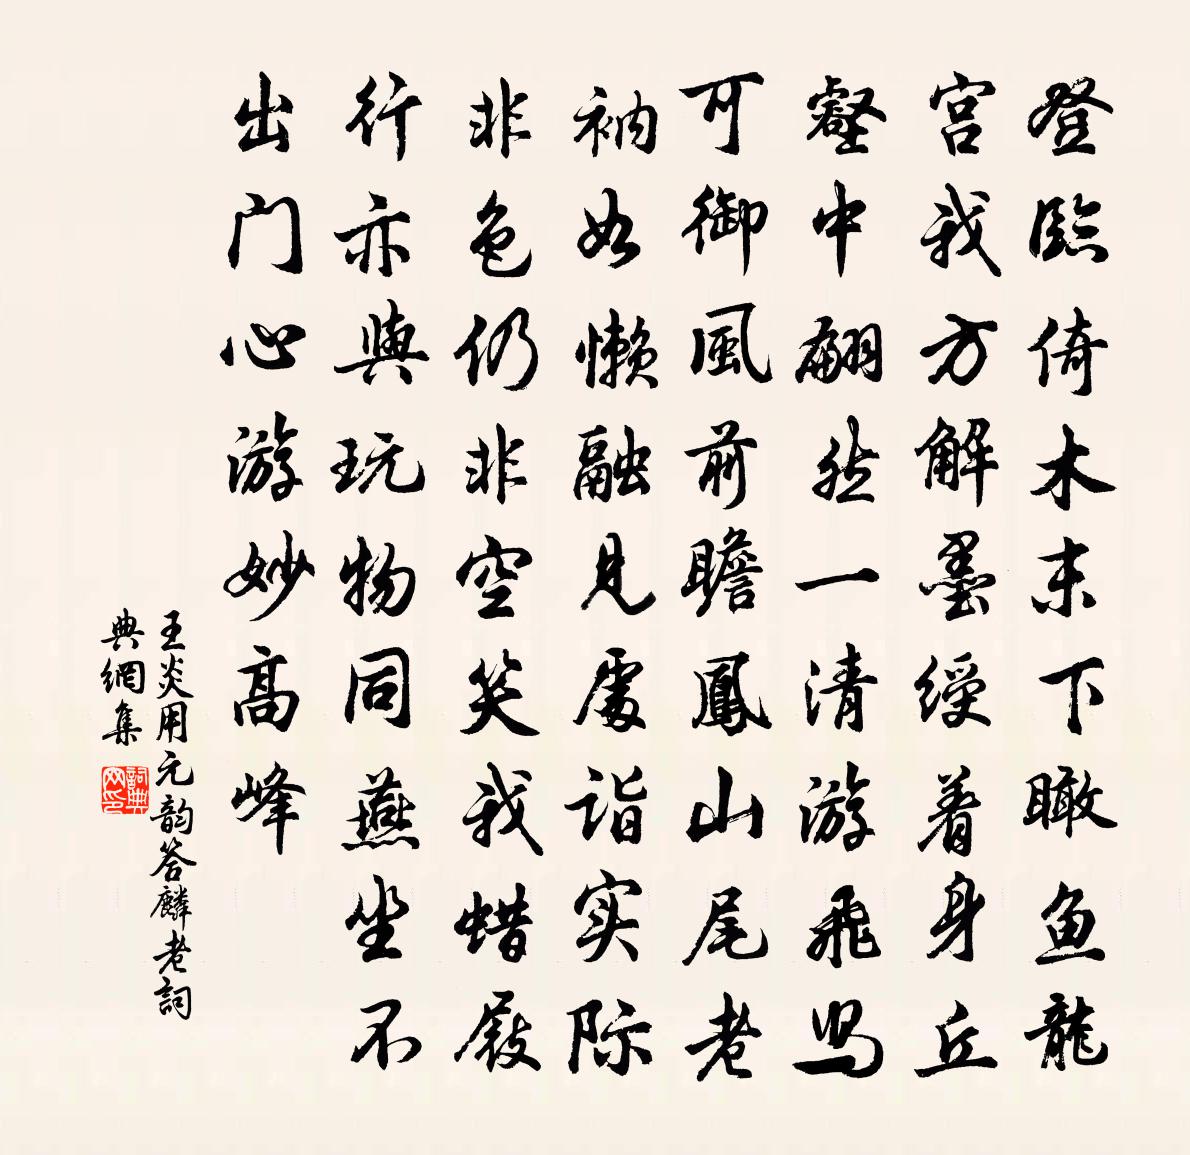 登臨倚木末下瞰鱼龍
宫我方解墨绶着身丘
壑中翩然一清游飛舄
可御風前瞻鳳山尾老
衲如懒融見處詣实际
非色仍非空笑我蜡屐
行亦與玩物同燕坐不
出门心游妙高峰
王炎用元韵答麟老詞
典網集
詞典
网印